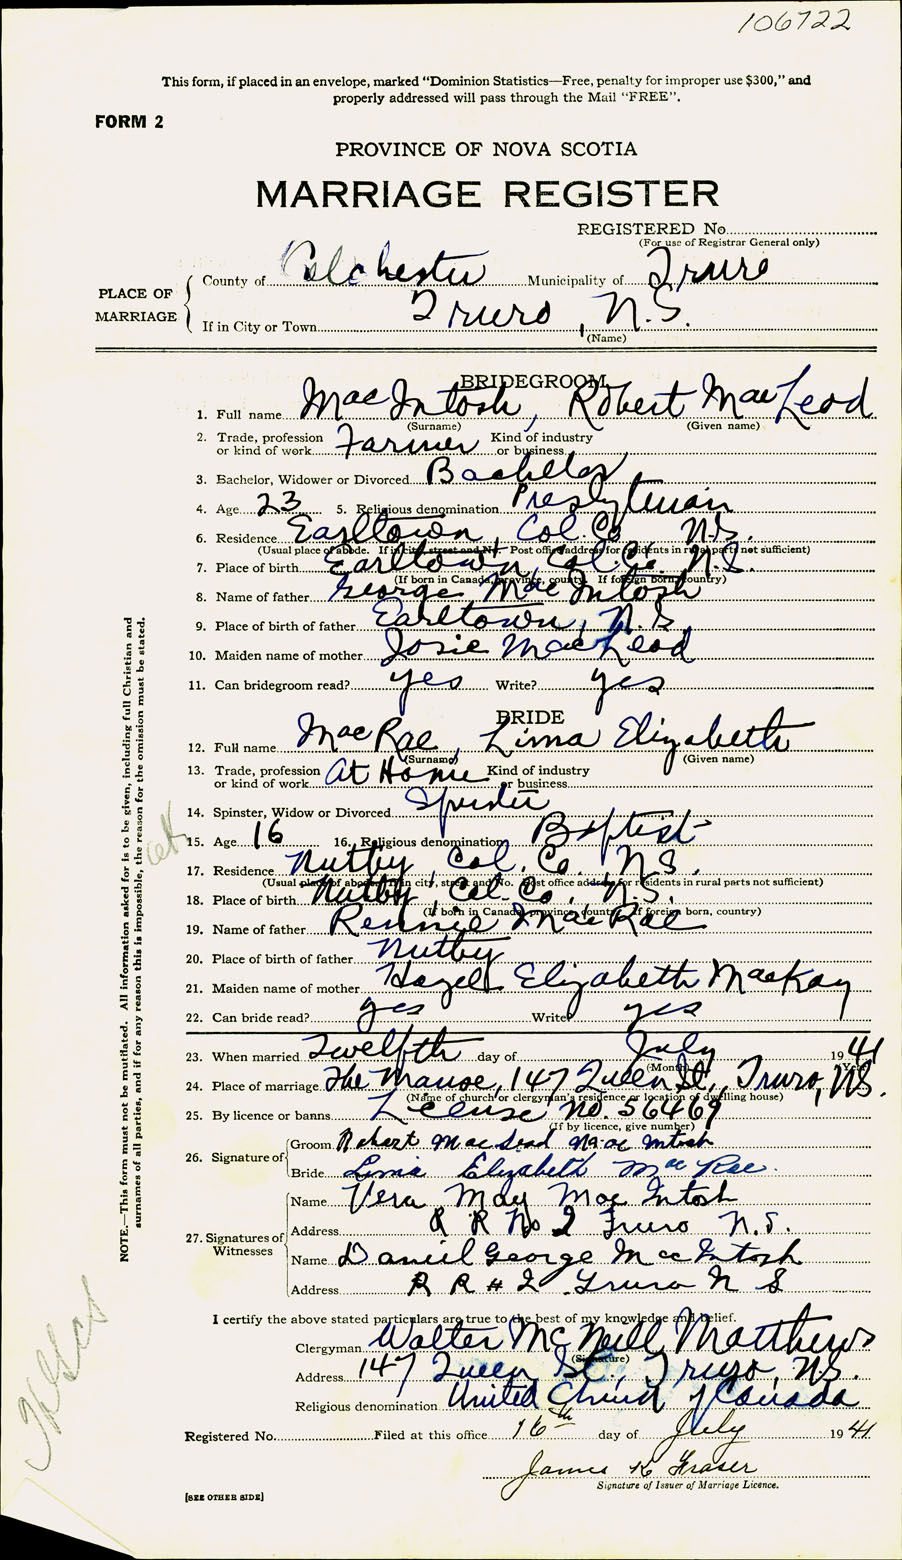 106722
This form, if placed in an envelope, marked “Dominion Statistics—Free, penalty for improper use $300,” and
properly addressed will pass through the Mail “FREE”.
FORM 2
PROVINCE OF NOVA SCOTIA
MARRIAGE REGISTER
REGISTERED No.
(For use of Registrar General only)
PLACE OF MARRIAGE
County of Colchester Municipality of Truro
If in City or Town Truro, N.S.
(Name)
BRIDEGROOM
1. Full name MacIntosh, Robert MacLeod
(Surname) (Given name)
2. Trade, profession or kind of work Farmer Kind of industry or business
3. Bachelor, Widower or Divorced Bachelor
4. Age 23 5. Religious denomination Presbyterian
6. Residence Earltown, Col. Co. N.S.
(Usual place of abode. If in city, street and No. Post office address for residents in rural parts not sufficient)
7. Place of birth Earltown, Col. Co. N.S.
(If born in Canada, province, county. If foreign born, country)
8. Name of father George MacIntosh
9. Place of birth of father Earltown, N.S.
10. Maiden name of mother Josie MacLeod
11. Can bridegroom read? yes Write? yes
BRIDE
12. Full name MacRae, Lima Elizabeth
(Surname) (Given name)
13. Trade, profession or kind of work At Home Kind of industry or business
14. Spinster, Widow or Divorced Spinster
15. Age 16 16. Religious denomination Baptist
17. Residence Nutby, Col. Co., N.S.
(Usual place of abode. If in city, street and No. Post office address for residents in rural parts not sufficient)
18. Place of birth Nutby, Col. Co., N.S.
(If born in Canada, province, county. If foreign born, country)
19. Name of father Rennie MacRae
20. Place of birth of father Nutby
21. Maiden name of mother Hazel Elizabeth MacKay
22. Can bride read? yes Write? yes
23. When married Twelfth day of July 1941
(Month) (Year)
24. Place of marriage The Manse, 147 Queen St., Truro, N.S.
(Name of church or clergyman's residence or location of dwelling house)
25. By licence or banns License No. 56469
(If by licence, give number)
26. Signature of Groom Robert MacLeod MacIntosh
Bride Lima Elizabeth MacRae.
27. Signatures of Witnesses
Name Vera May MacIntosh
Address R R No 2 Truro N.S.
Name Daniel George MacIntosh
Address R R # 2 Truro N S
I certify the above stated particulars are true to the best of my knowledge and belief.
Clergyman Walter McNeill Matthews
(Signature)
Address 147 Queen St., Truro, N.S.
Religious denomination United Church of Canada
Registered No. Filed at this office 16th day of July 1941
James K Fraser
Signature of Issuer of Marriage Licence.
[SEE OTHER SIDE]
NOTE.—This form must not be mutilated. All information asked for is to be given, including full Christian and
surnames of all parties, and if for any reason this is impossible, the reason for the omission must be stated.